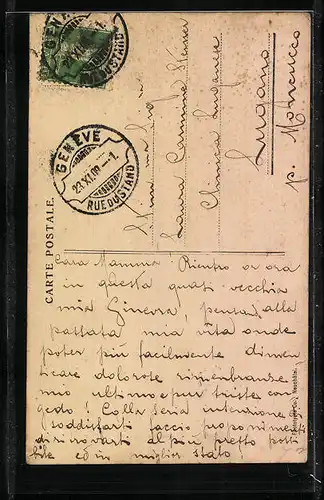 GENÈVE
23.XI.09.-1.
RUE DU STAND
CARTE POSTALE.
Laura Carmine Steiner
Lugano
p. Monrucco
Cara Mamma! Rientro or ora
in questa quasi vecchia
mia Ginevra, pensando alla
passata mia vita onde
poter più facilmente dimen-
ticare dolorose rimembranze
mio ultimo e pur triste con-
gedo! Colla seria intenzione
soddisfarti faccio proponimento
di rinovarti al più presto possi-
bile ed in miglior stato!